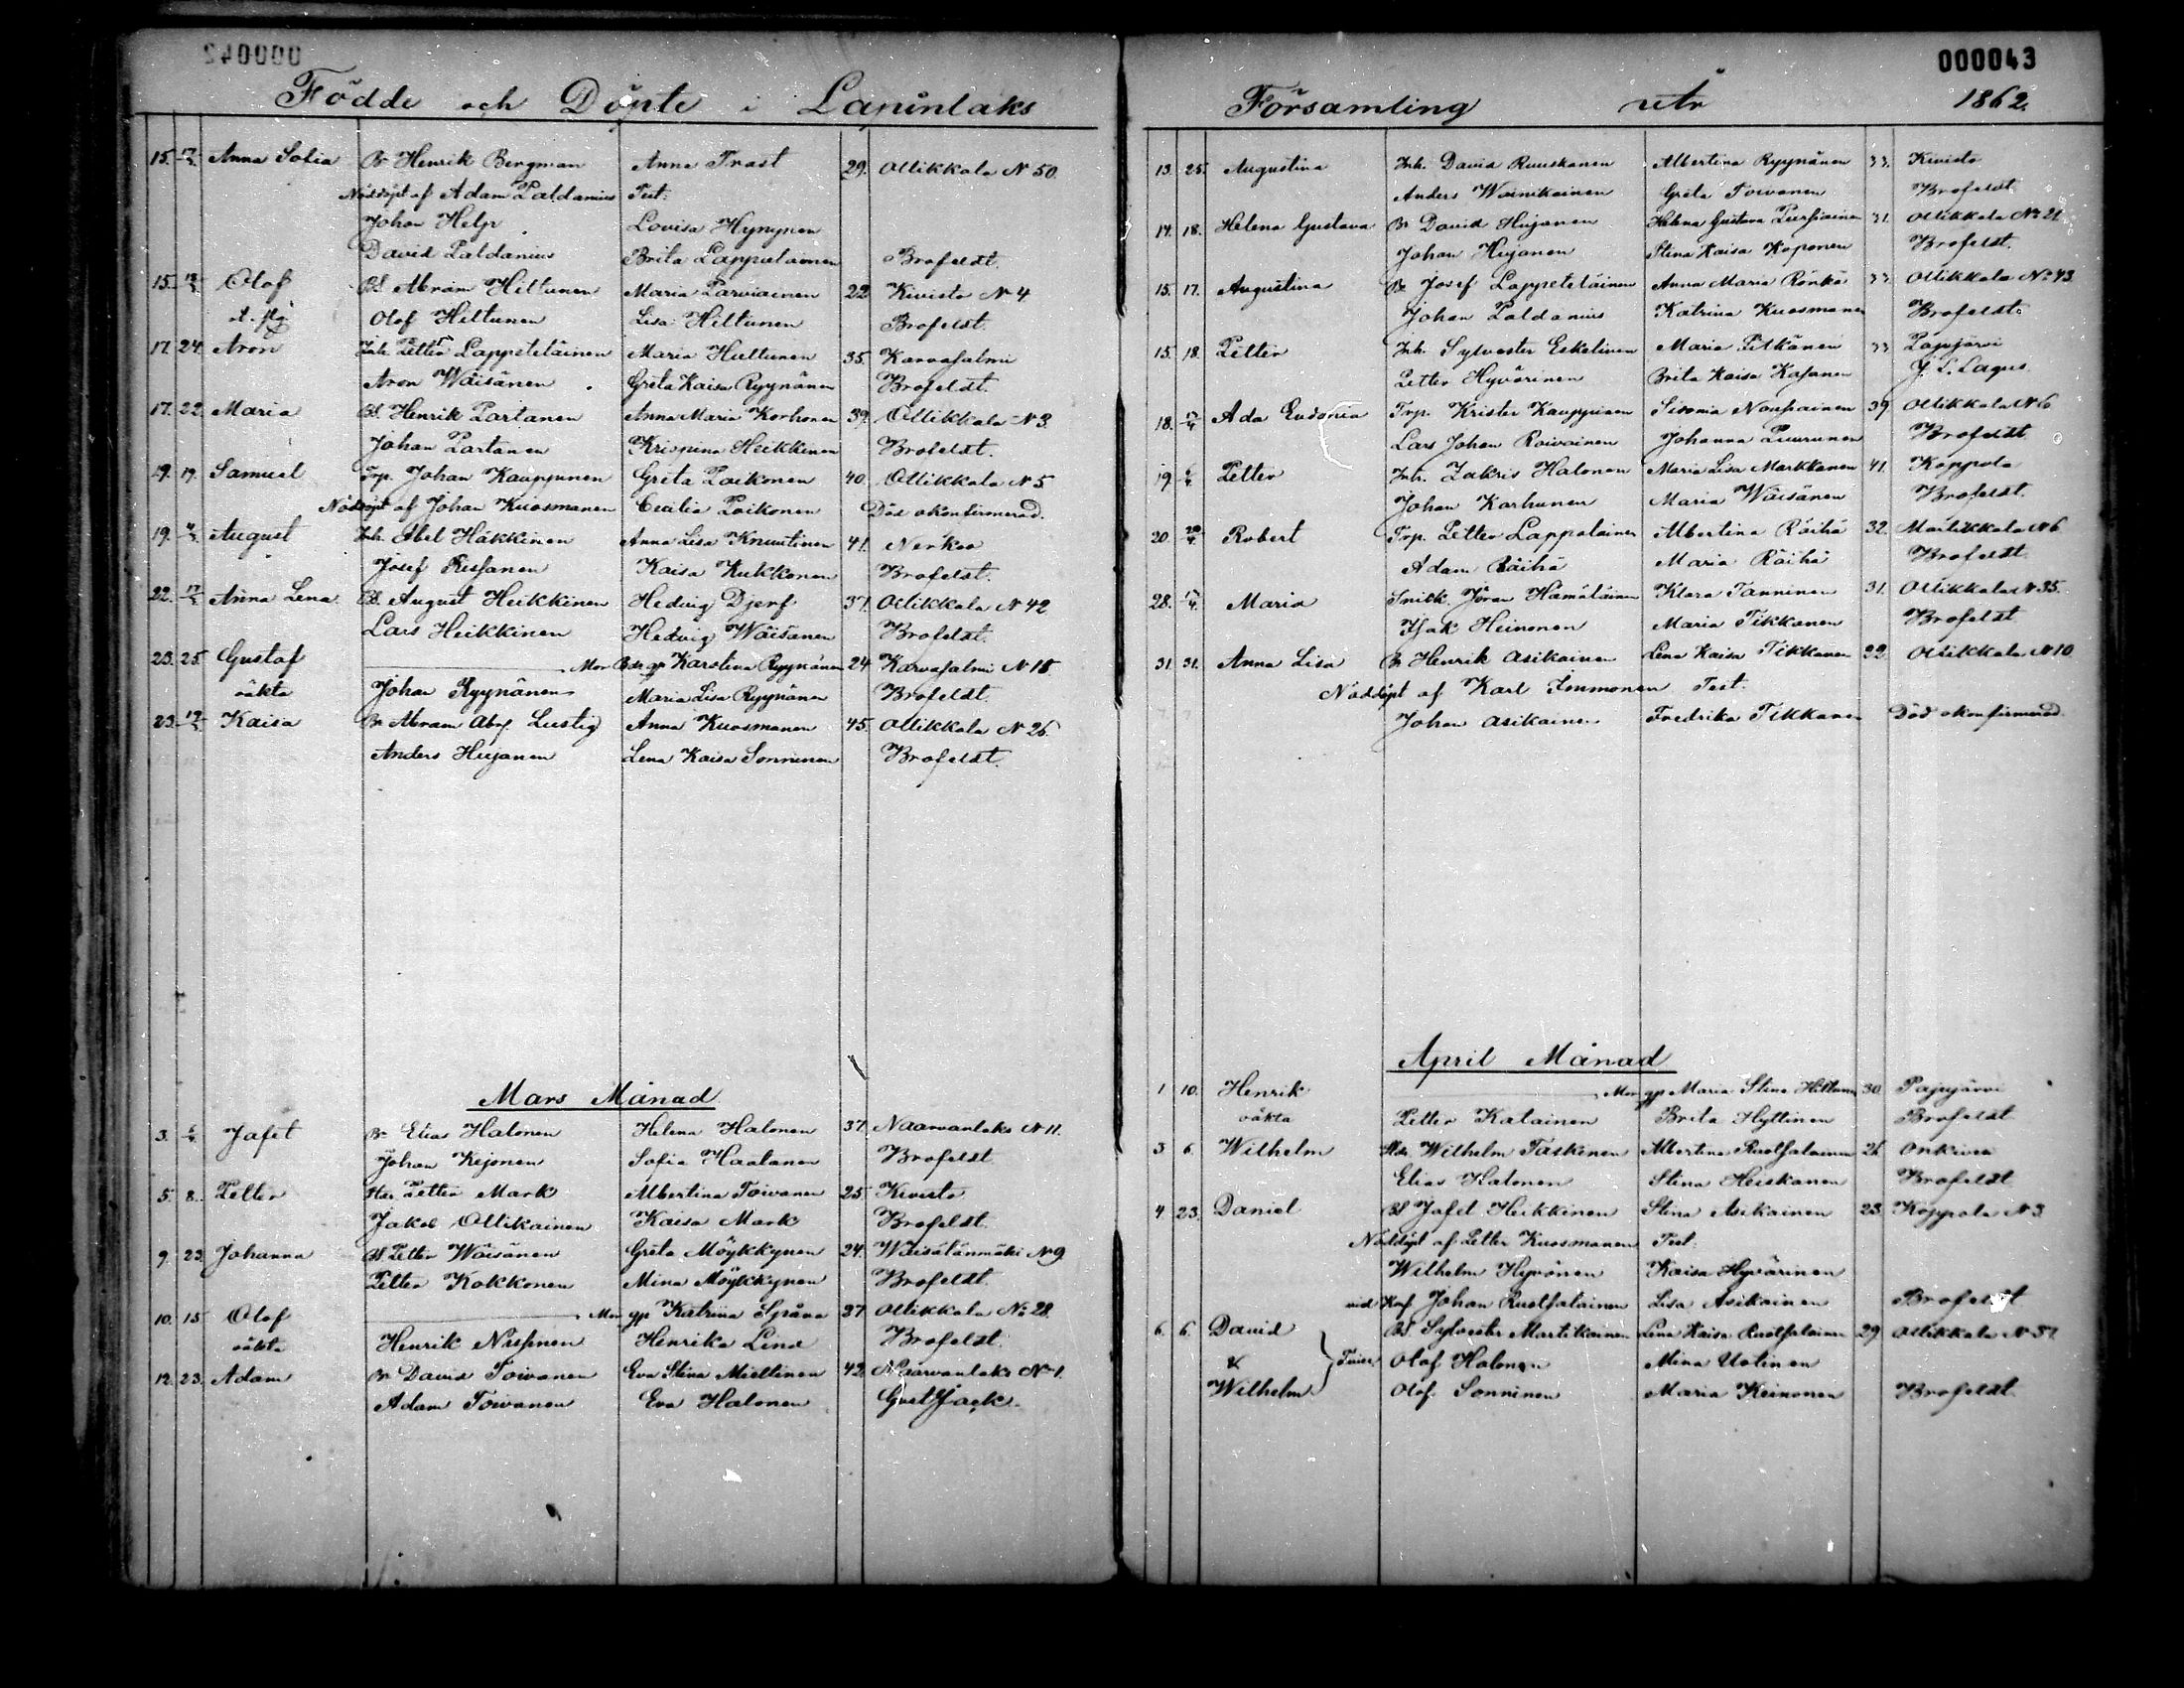 000042
Födde och Döpte i Lapinlaks
15. 17/3 Anna Sofia Br Henrik Bergman Anna Trast 29. Ollikkala N 50.
Nöddöpt af Adam Paldanius Test:
Johan Help Lovisa Hynynen
David Paldanius Brita Lappetelainen Brofeldt.
15. Olof Bd Abram Hiltunen Maria Parviainen 22 Kivisto N 4
Olof Hiltunen Lisa Hiltunen Brofeldt.
17. 24. Aron Inh. Petter Lappeteläinen Maria Huttunen 35. Karvasalmi
Aron Wäisänen Greta Kaisa Ryynänen Brofeldt.
17. 22. Maria Bd Henrik Partanen Anna Maria Korhonen 39. Ollikkala N 3.
Johan Partanen Krispina Heikkinen Brofeldt.
19. 19. Samuel Trp. Johan Kauppinen Greta Poikonen 40. Ollikkala N 5
Nöddöpt af Johan Kuosmanen Cecilia Poikonen Död okonfirmerad.
19. August Inh. Abel Häkkinen Anna Lisa Knuutinen 41. Nerkoo
Josef Ressanen Kaisa Kukkonen Brofeldt.
22. Anna Lena Bd. August Heikkinen Hedvig Djerf 37. Ollikkala N 42
Lars Heikkinen Hedvig Wäisänen Brofeldt.
23. 25. Gustaf Mor Bdr gp Karolina Ryynänen 24 Karvasalmi N 18.
oäkta Johan Ryynänen Maria Lisa Ryynänen Brofeldt.
23. Kaisa Br Abram Abrf. Lustig Anna Kuosmanen 45. Ollikkala N 26.
Anders Hujanen Lena Kaisa Sonninen Brofeldt.
Mars Månad
3. Jafet Br Elias Halonen Helena Halonen 37. Naarvanlaks N 11.
Johan Kejonen Sofia Haatanen Brofeldt.
5. 8. Petter Petter Mark Albertina Toivanen 25. Kivisto
Jakob Ollikainen Kaisa Mark Brofeldt.
9. 23. Johanna Bd Petter Wäisänen Greta Möykkynen 24. Wäisälänmäki N 9
Petter Kokkonen Mina Möykkynen Brofeldt.
10. 15 Olof Mor gp Katriina 27. Ollikkala No 28.
oäkta Henrik Nissinen Henrika Lind Brofeldt.
12. 23. Adam Br David Toivanen Eva Stina Miettinen 42. Naarvanlaks No 1.
Adam Toivanen Eva Halonen
000043
Församling år 1862.
13. 25. Augustina Inh. David Ruuskanen Albertina Ryynänen 33. Kivisto
Anders Wainikainen Greta Toivanen Brofeldt.
14. 18. Helena Gustava Br David Hujanen Helena Gustava 31. Ollikkala No 21.
Johan Hujanen Stina Kaisa Koponen Brofeldt.
15. 17. Augustina Br Josef Lappeteläinen Anna Maria Rönkä 33. Ollikkala No 43.
Johan Paldanius Katrina Kuosmanen Brofeldt.
15. 18. Petter Inh. Sylvester Eskelinen Maria Pitkänen 33 Pajujärvi
Petter Hyvärinen Brita Kaisa Kasanen J. L. Lagus.
18. Ada Eudonia Trp. Krister Kauppinen Sisonia Nousiainen 39 Ollikkala N 6
Lars Johan Roivainen Johanna Puurunen Brofeldt.
19 Petter Inh. Zakris Halonen Maria Lisa Markkanen 41. Koppola
Johan Karhunen Maria Wäisänen Brofeldt.
20. 20/4 Robert Trp. Petter Lappalainen Albertina Räihä 32. Martikkala N 6
Adam Räihä Maria Räihä Brofeldt.
28. 17/4 Maria Snick. Jöran Hämäläinen Klara Tanninen 31. Ollikkala N 35.
Isak Heinonen Maria Tikkanen Brofeldt.
31. 31. Anna Lisa Br Henrik Asikainen Lena Kaisa Tikkanen 22. Ollikkala N 10
Nöddöpt af Karl Immonen Test.
Johan Asikainen Fredrika Tikkanen Död okonfirmerad.
April Månad
1. 10. Henrik Mor gp Maria Stina Hiltunen 30. Pajujärvi
oäkta Petter Katainen Brita Hyttinen Brofeldt
3 6. Wilhelm Wilhelm Taskinen Albertina Ruotsalainen 26 Onkivesi
Elias Halonen Stina Heiskanen Brofeldt
4. 23. Daniel Bd Jafet Heikkinen Stina Asikainen 23. Koppola N 3.
Nöddöpt af Petter Kuosmanen Test:
Wilhelm Hyvönen Kaisa Hyvärinen
vid Konf. Johan Ruotsalainen Lisa Asikainen Brofeldt
6. 6. David Bd Sylvester Martikainen Lena Kaisa Ruotsalainen 29. Ollikkala
& Olof Halonen Mina Uotinen
Wilhelm Olof Sonninen Maria Keinonen Brofeldt.